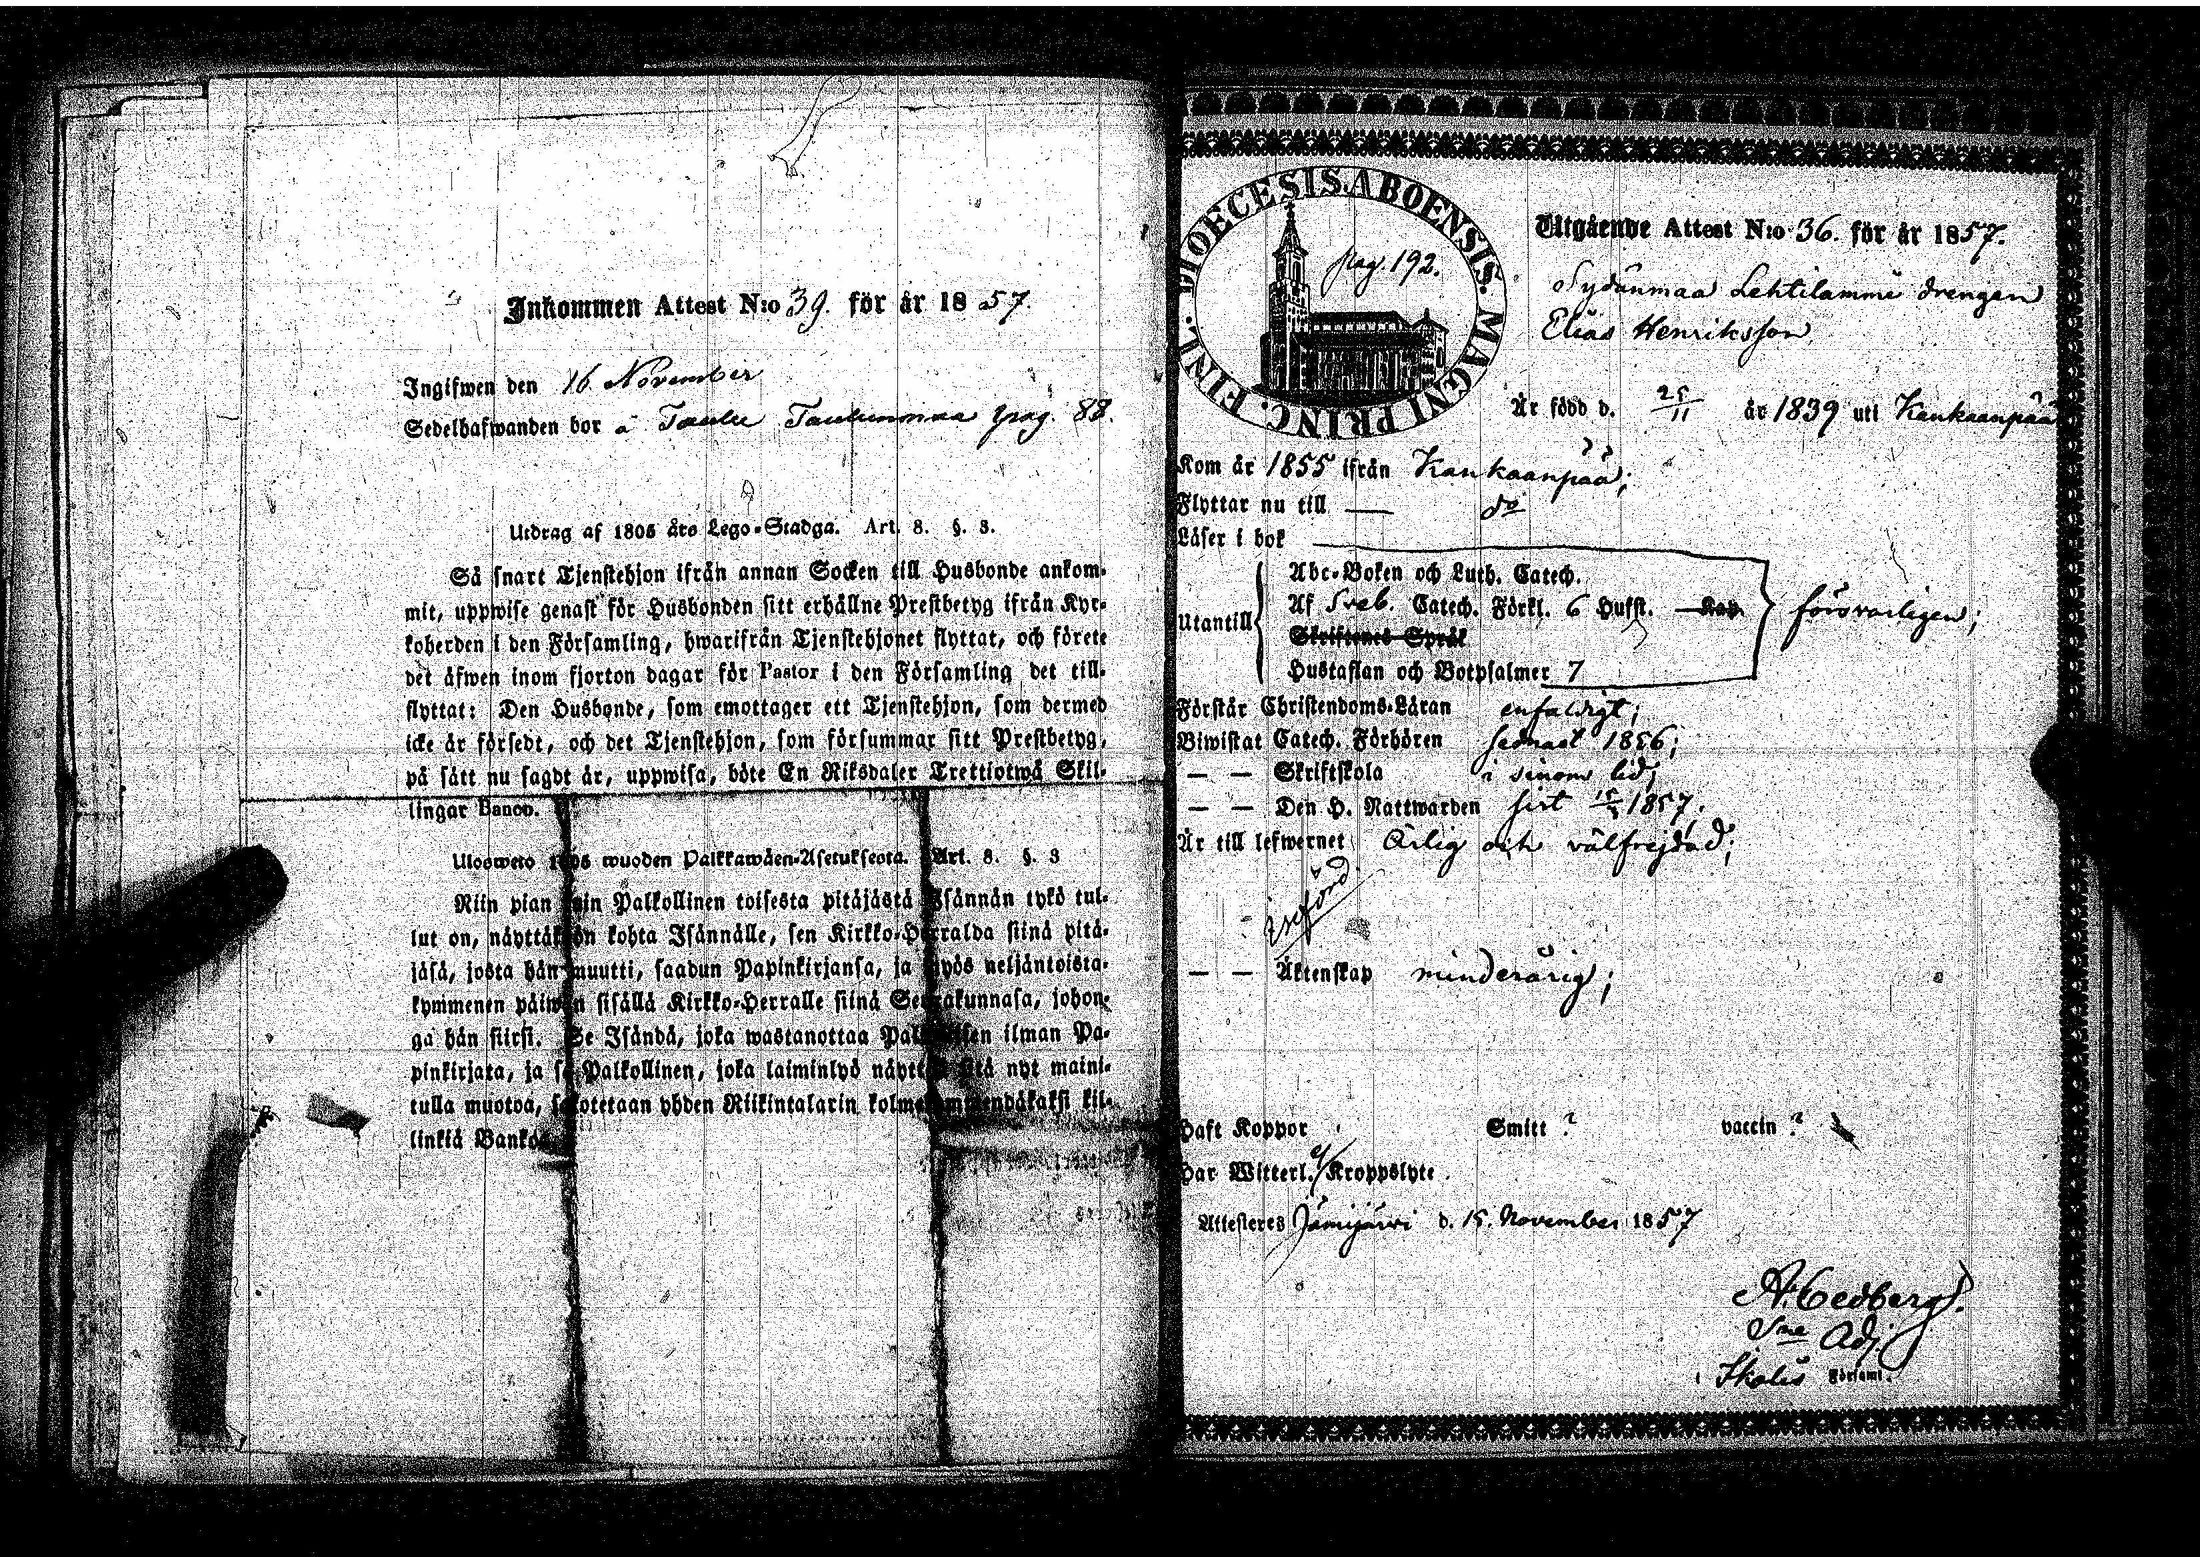 Inkommen Attest N:o 39. för år 1857.
Ingifwen den 16 November
Sedelhafwanden bor å Taulu Taulunmaa pag. 88.
Utdrag af 1805 års Lego-Stadga. Art. 8. §. 3.
Så snart Tjenstehjon ifrån annan Socken till Husbonde ankom-
mit, uppwise genast för Husbonden sitt erhållne Prestbetyg ifrån Kyr-
koherden i den Församling, hwarifrån Tjenstehjonet flyttat, och förete
det äfwen inom fjorton dagar för Pastor i den Församling det till-
flyttat: Den Husbonde, som emottager ett Tjenstehjon, som dermed
icke är försedt, och det Tjenstehjon, som försummar sitt Prestbetyg,
på sätt nu sagdt är, uppwisa, böte En Riksdaler Trettiotwå Skil-
lingar Banco.
Ulosweto 1805 wuoden Palkkawäen-Asetuksesta. Art. 8. §. 3
Niin pian kuin Palkollinen toisesta pitäjästä Isännän tykö tul-
lut on, näyttäkön kohta Isännälle, sen Kirkko-Herralda siinä pitä-
jäsä, josta hän muutti, saadun Papinkirjansa, ja myös neljäntoista-
kymmenen päiwän sisällä Kirkko-Herralle siinä Seurakunnasa, johon-
ga hän siirsi. Se Isändä, joka wastanottaa Palkollisen ilman Pa-
pinkirjata, ja se Palkollinen, joka laiminlyö näyttää sitä nyt maini-
tulla muotoa, sakotetaan yhden Riikintalarin kolmekymmendäkaksi kil-
linkiä Bankos
DIOECESIS ABOENSIS. MAGNI PRINC. FINL.
pag. 192.
Utgående Attest N:o 36. för år 1857.
Sydänmaa Lehtilammi drengen
Elias Henriksson,
Är född d. 25/11 år 1839 uti Kankaanpää
Kom år 1855 ifrån Kankaanpää;
Flyttar nu till — do
Läser i bok
Utantill
Abc-Boken och Luth. Catech.
Af Sveb. Catech. Förkl. 6 Hufst. Kap
Skriftenes Språk
Hustaflan och Botpsalmer 7
försvarligen;
Förstår Christendoms-Läran enfaldigt;
Biwistat Catech. Förhören sednast 1856;
— — Skriftskola i sinom tid;
— — Den H. Nattwarden sist 1857.
Är till lefwernet Ärlig och välfrejdad;
införd.
— — Äktenskap minderårig;
Haft Koppor Smitt ? vaccin ?
Har Witterl. ej Kroppslyte.
Attesteres Jämijärwi d. 15. November 1857
A. Cedberg.
Adj.
i Ikalis Församl.